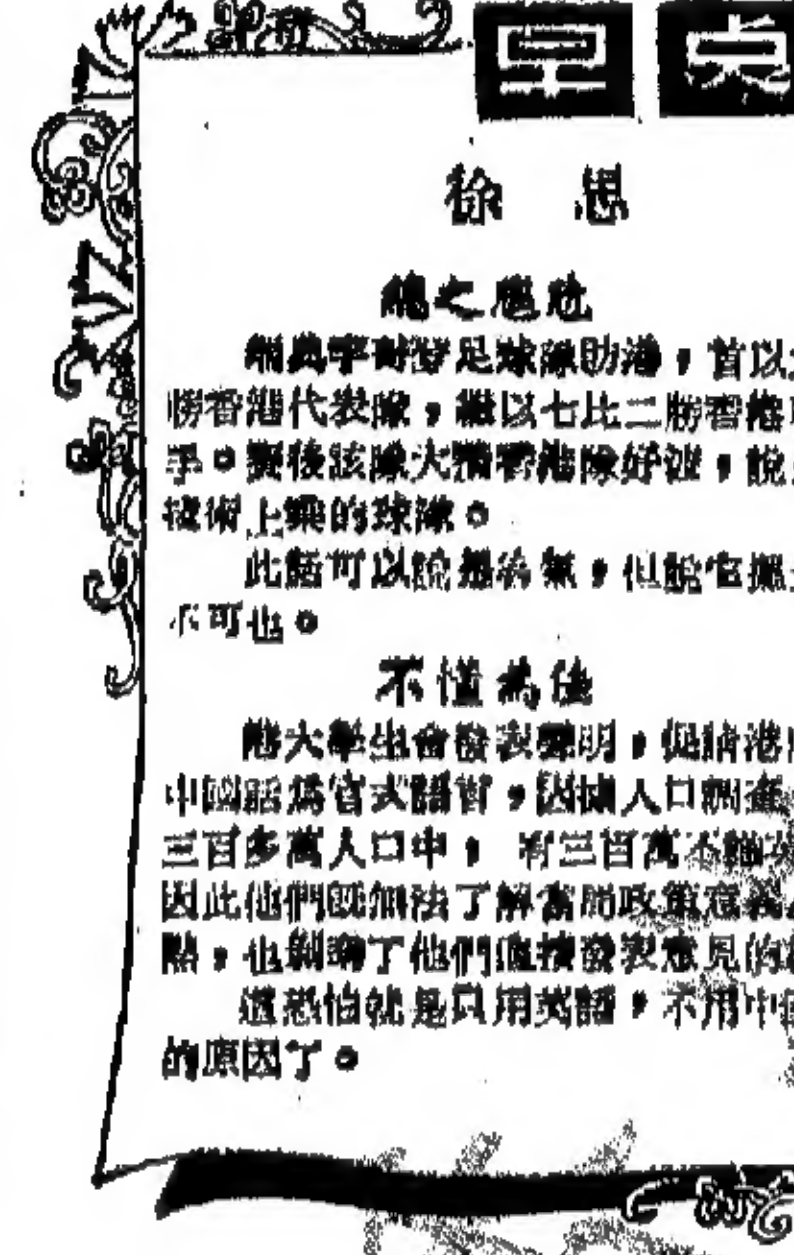 徐 思
瑞典宇哥登足球隊訪港，首以
勝香港代表隊，繼以七比二勝香港
手。賽後該隊大讚香港隊好波，說
技術上乘的球隊。
此話可以說是客氣，但說它諷
不可也。
不懂為佳
港大學生會發表聲明，促請港
中國話爲官式語言，因據人口調查
三百多萬人口中， 有三百萬不諳
因此他們既無法了解當局政策意義
點，也剝奪了他們直接發表意見的
這恐怕就是只用英語，不用中
的原因了。